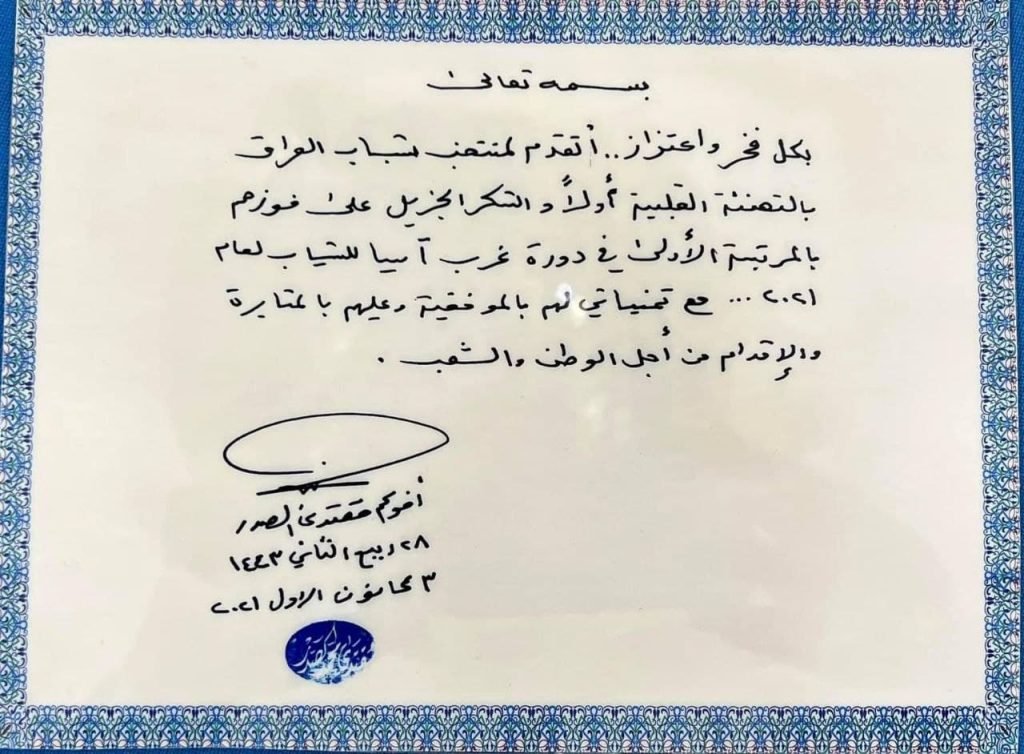 بسمه تعالى
بكل فخر واعتزاز.. أتقدم لمنتخب شباب العراق
بالتهنئة القلبية أولاً والشكر الجزيل على فوزهم
بالمرتبة الأولى في دورة غرب آسيا للشباب لعام
٢٠٢١ ... مع تمنياتي لهم بالموفقية وعليهم بالمثابرة
والإقدام من أجل الوطن والشعب .
أخوكم مقتدى الصدر
٢٨ ربيع الثاني ١٤٤٣
٣ كانون الاول ٢٠٢١